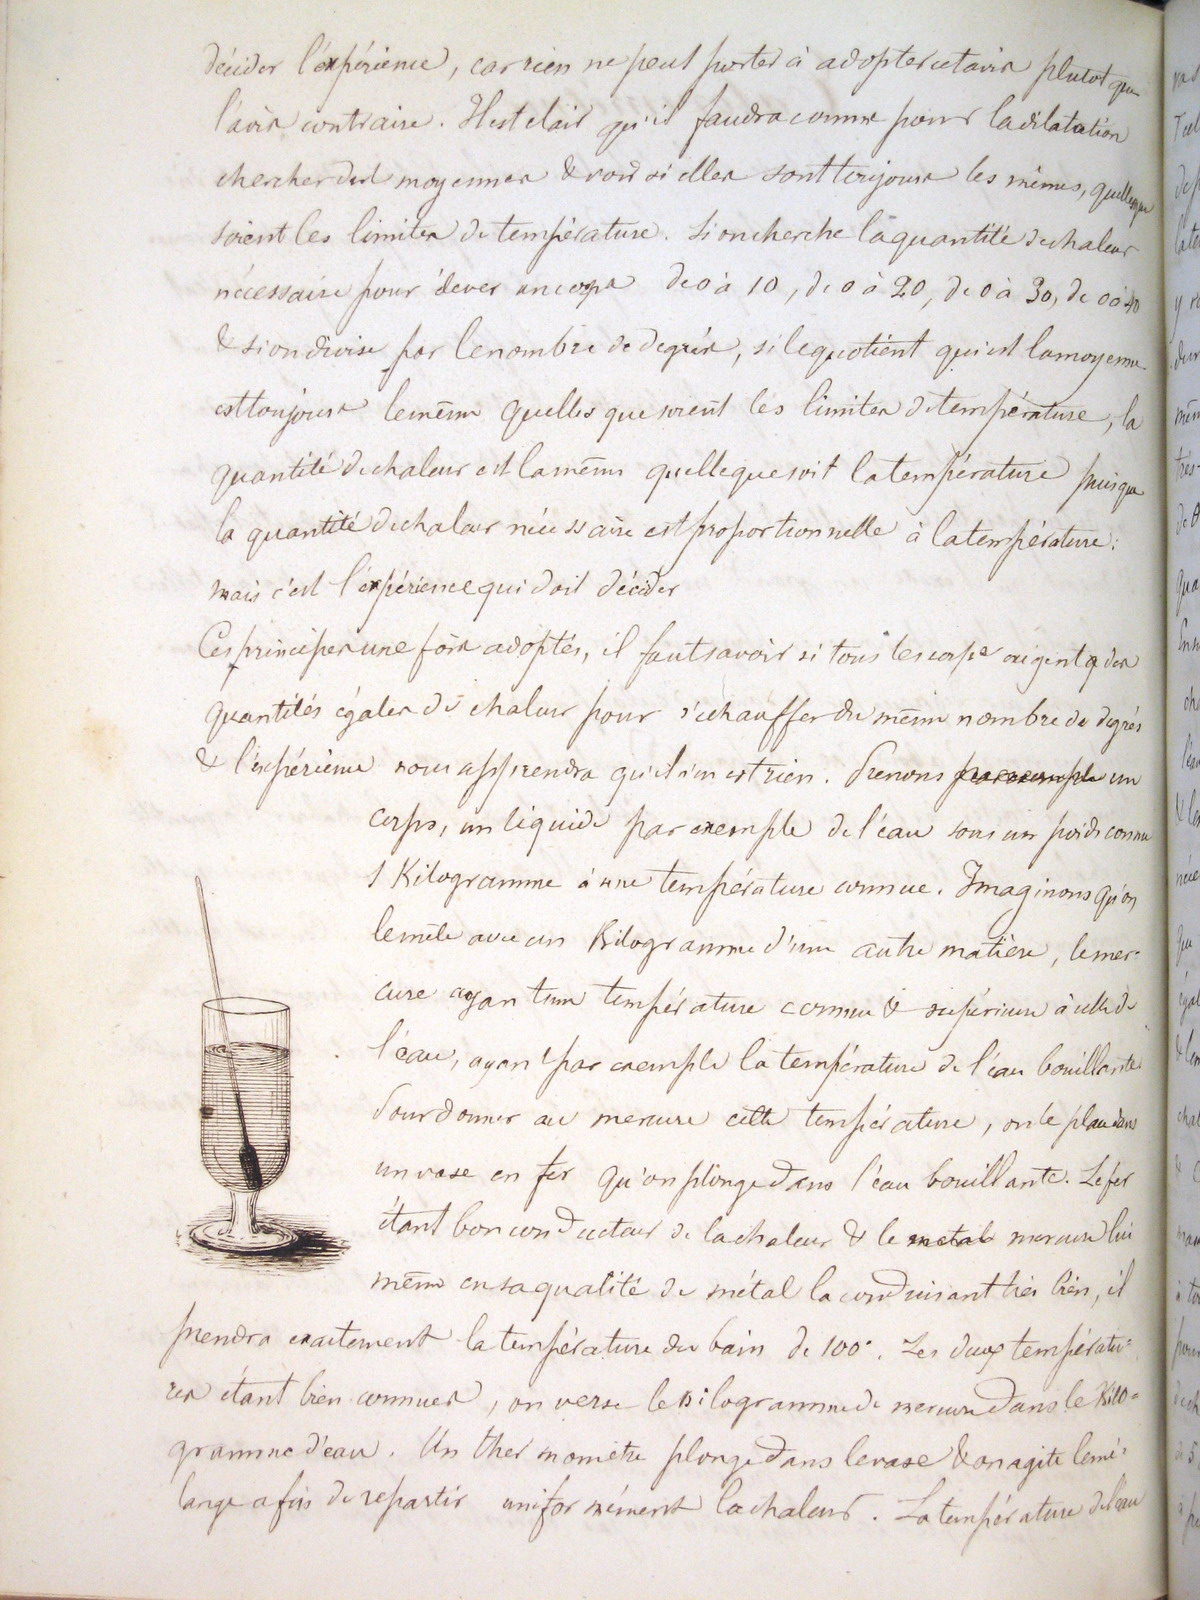 décider l'expérience, car rien ne peut porter à adopter cet avis plutot que
l'avis contraire. Il est clair qu'il faudra comme pour la dilatation
chercher des moyennes & voir si elles sont toujours les mêmes, quelles que
soient les limites de température. Si on cherche la quantité de chaleur
nécessaire pour élever un corps de 0 à 10, de 0 à 20, de 0 à 30, de 0 à 40
& si on divise par le nombre de degrés, si le quotient qui est la moyenne
est toujours le même quelles que soient les limites de température, la
quantité de chaleur est la même quelle que soit la température puisque
la quantité de chaleur nécessaire est proportionnelle à la température:
mais c'est l'expérience qui doit décider
Ces principes une fois adoptés, il faut savoir si tous les corps exigent des
quantités égales de chaleur pour s'échauffer du même nombre de degrés
& l'expérience nous apprendra qu'il n'en est rien. Prenons par exemple un
corps, un liquide par exemple de l'eau sous un poids connu
1 Kilogramme à une température connue. Imaginons qu'on
le mêle avec un Kilogramme d'une autre matière, le mer-
cure ayant une température connue & supérieure à celle de
l'eau, ayant par exemple la température de l'eau bouillante
Pour donner au mercure cette température, on le place dans
un vase en fer qu'on plonge dans l'eau bouillante. Le fer
étant bon conducteur de la chaleur & le métal mercure lui
même en sa qualité de métal la conduisant très bien, il
prendra exactement la température du bain de 100°. Les deux températu-
res étant bien connues, on verse le kilogramme de mercure dans le Kilo-
gramme d'eau. Un thermomètre plonge dans le vase & on agite le mé-
lange afin de repartir uniformément la chaleur. La température de l'eau